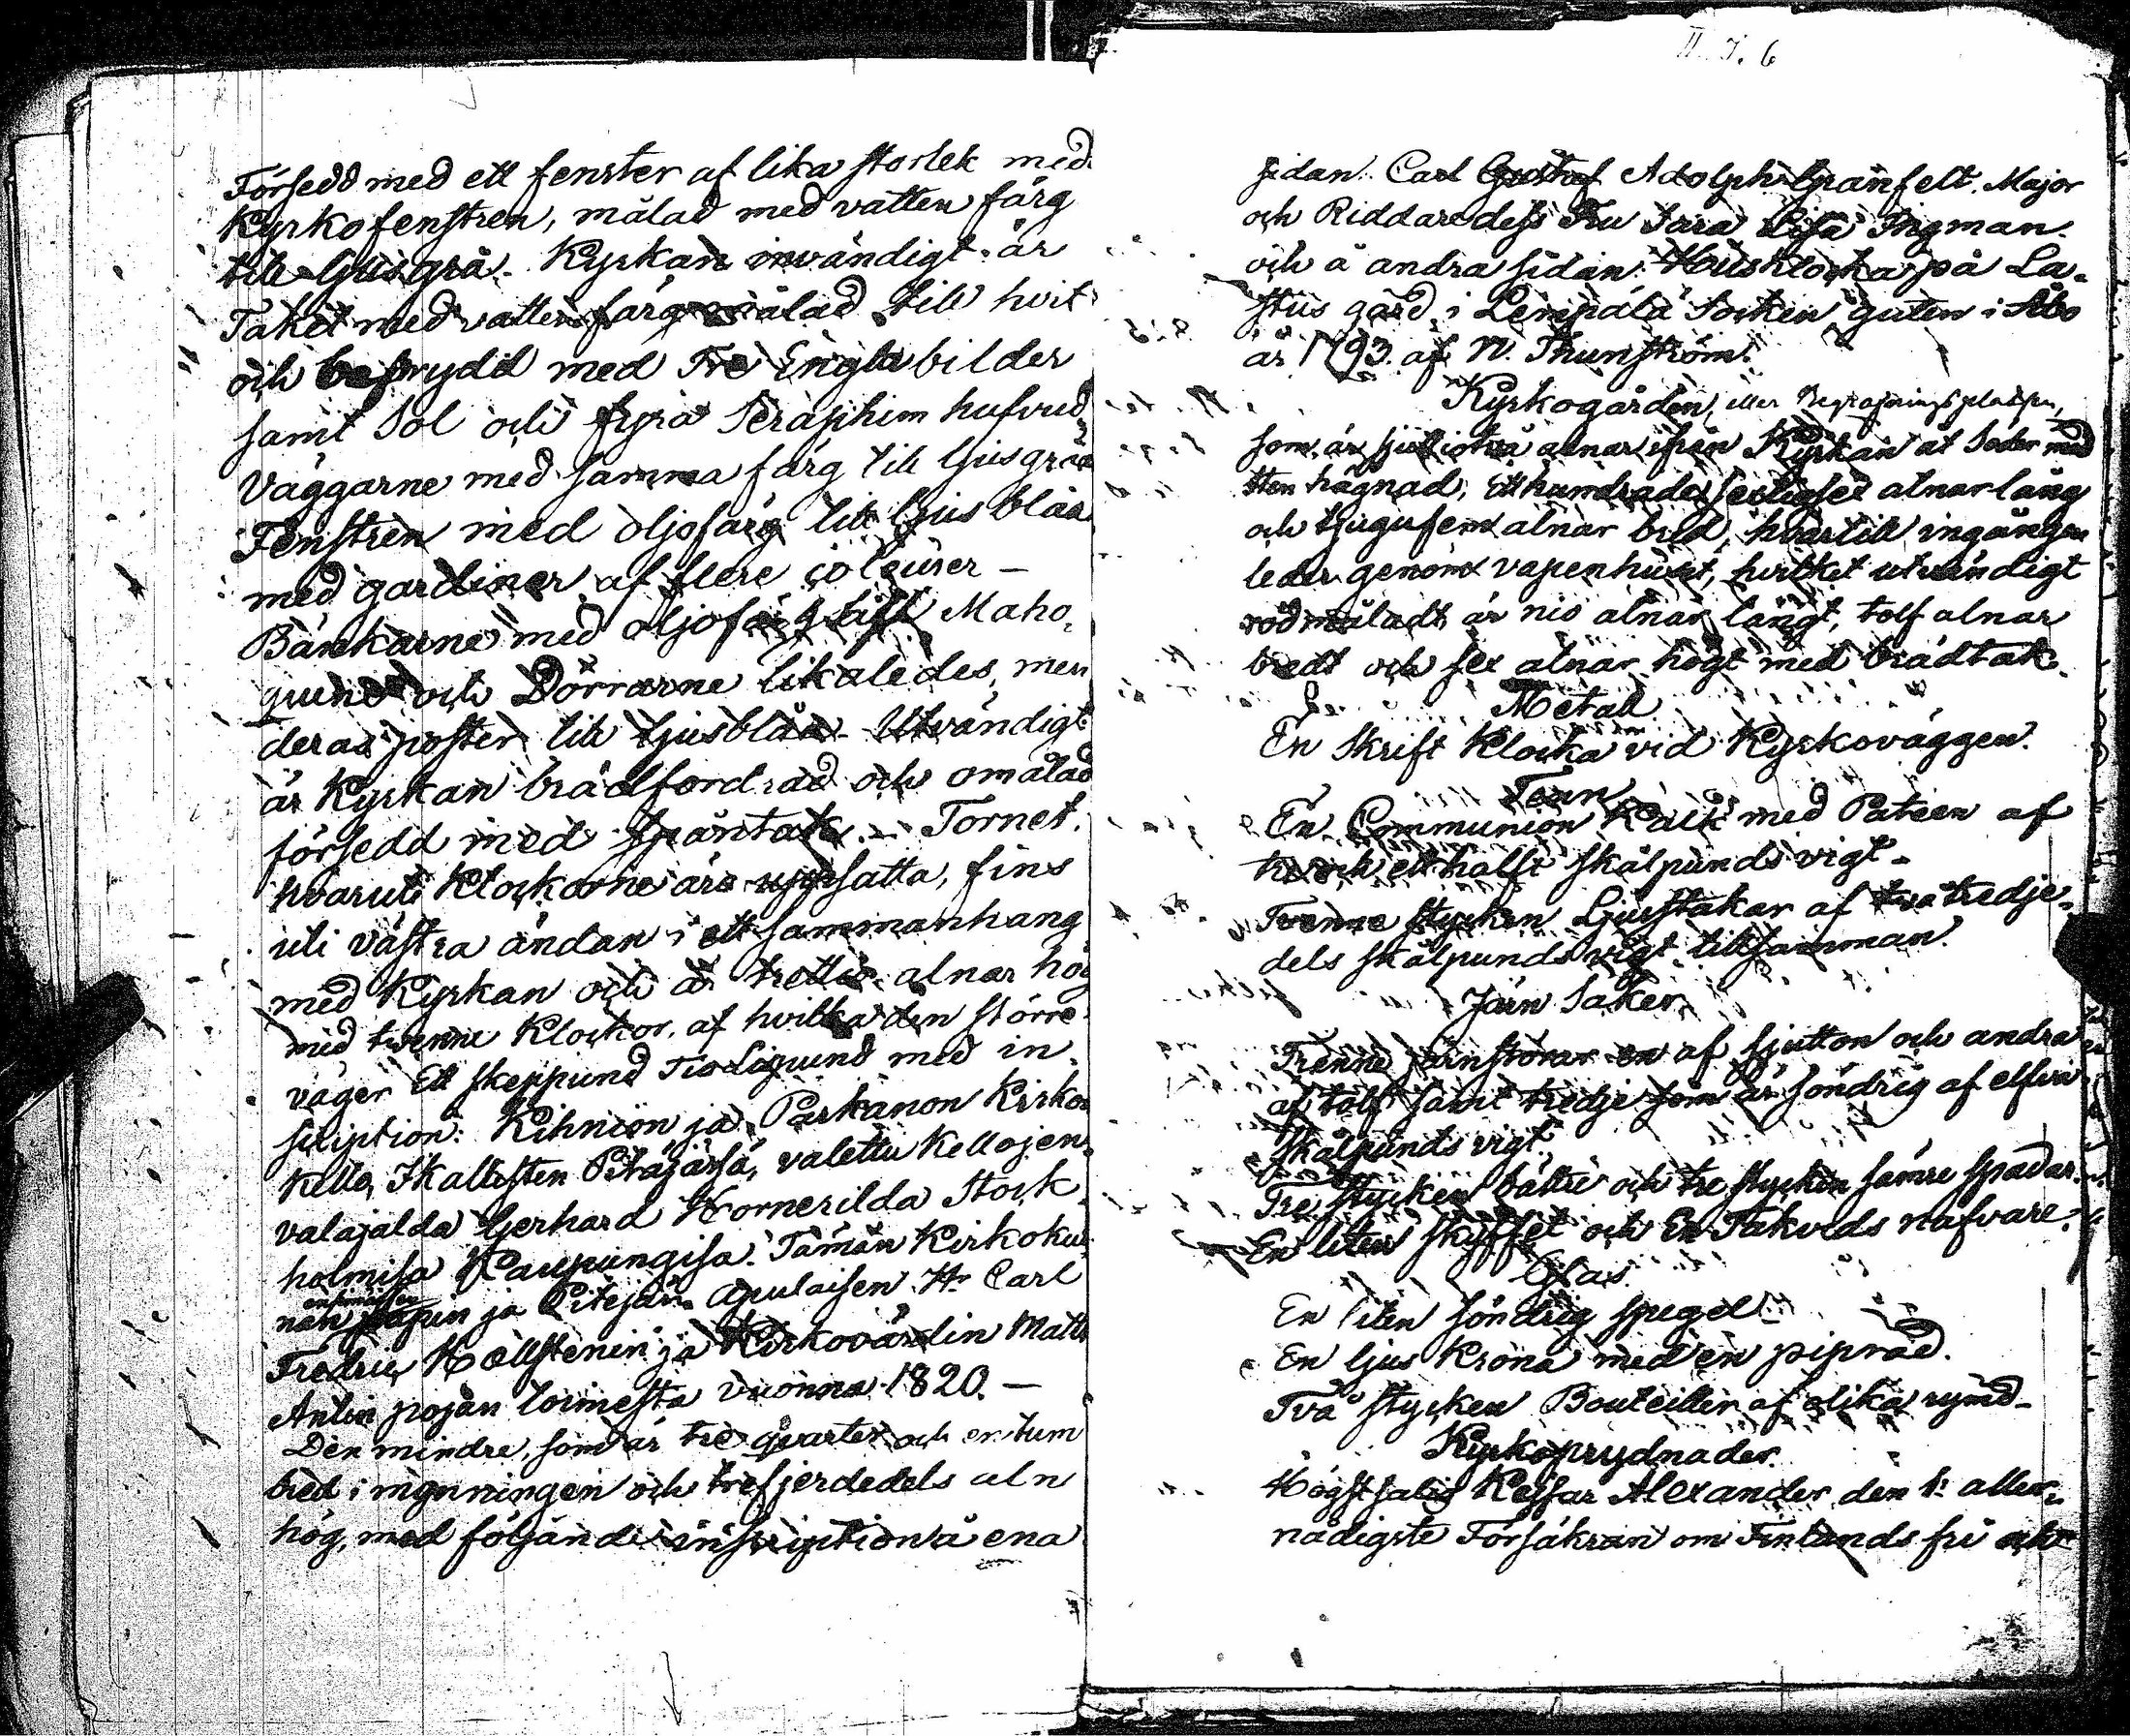 Försedd med ett fenster af lika storlek med
Kyrkofenstren, målad med vatten färg
till ljusgrå. Kyrkan invändigt är
Taket med vatten färg målad till hvit
och beprydd med Tre Engla bilder
samt Sol och fyra Seraphim hufvud,
Väggarne med samma färg till ljusgrå
Fenstren med oljofärg till ljus blåa
med gardiner af flere coleurer —
Bänkarne med oljofärg Maho,
guene och Dörrarne likaledes, men
deras poster till ljusblåa. Utvändigt
är Kyrkan brädfordrad och omålad
försedd med spåntak. — Tornet.
hvaruti Klockorne äro uppsatta, fins
uti västra ändan i ett sammanhang
med Kyrkan och är trettio alnar hög
med tvenne Klockor, af hvilka den större
väger Ett skeppund Tio Lispund med in,
scription: Kihniön ja Parkanon Kirko
kello, Ikalisten Pitäjäsä, valettu Kellojen,
valajalda Gerhard Hornerilda Stock,
holmisa Kaupungisa. Tämän Kirkoku,
nan ensimäisen papin ja Pitäjän apulaisen Hr Carl
Fredric Hällstenin ja Kirkovärdin Matts
Antin pojan toimesta vuonna 1820. —
Den mindre, som är tre qvarter och en tum
bred i mynningen och trefjerdedels aln
hög, med följande inscription å ena
II. I. 6
sidan. Carl Gustaf Adolph Granfelt. Major
och Riddare dess Fru Sara Lisa Ingman.
och å andra sidan: Husklocka på La,
stus gård i Lempälä Socken guten i Åbo
år 1793. af N. Thunström.
Kyrkogården, eller Begrafningsplatsen,
som är sjuttiotvå alnar ifrån Kyrkan åt Söder med
sten hägnad, Etthundrade sextiosex alnar lång
och tjugufem alnar bred, hvartill ingången
leder genom vapenhuset, hvilket utvändigt
rödmåladt är nio alnar långt, tolf alnar
bredt och sex alnar högt med brädtak.
Metall
En Skrift Klocka vid Kyrkoväggen.
Tenn
En Communion Kalk med Pateen af
tre och ett halft skålpunds vigt.
Tvenne stycken Ljusstakar af två tredje,
dels skålpunds vigt tillsamman.
Järn Saker
Trenne Järnstörar en af sjutton och andra
af tolf samt tredje som är söndrig af elfva
skålpunds vigt.
Tre stycken bättre och tre stycken sämre spadar.
En liten skyffel och En Takveds nafvare.
Glas
En liten söndrig spegel
En ljus Krona med en piprad.
Två stycken Bouteiller af olika rymd.
Kyrkoprydnader
Högstsalig Kejsar Alexander den 1: aller,
nådigste Försäkran om Finlands fri och